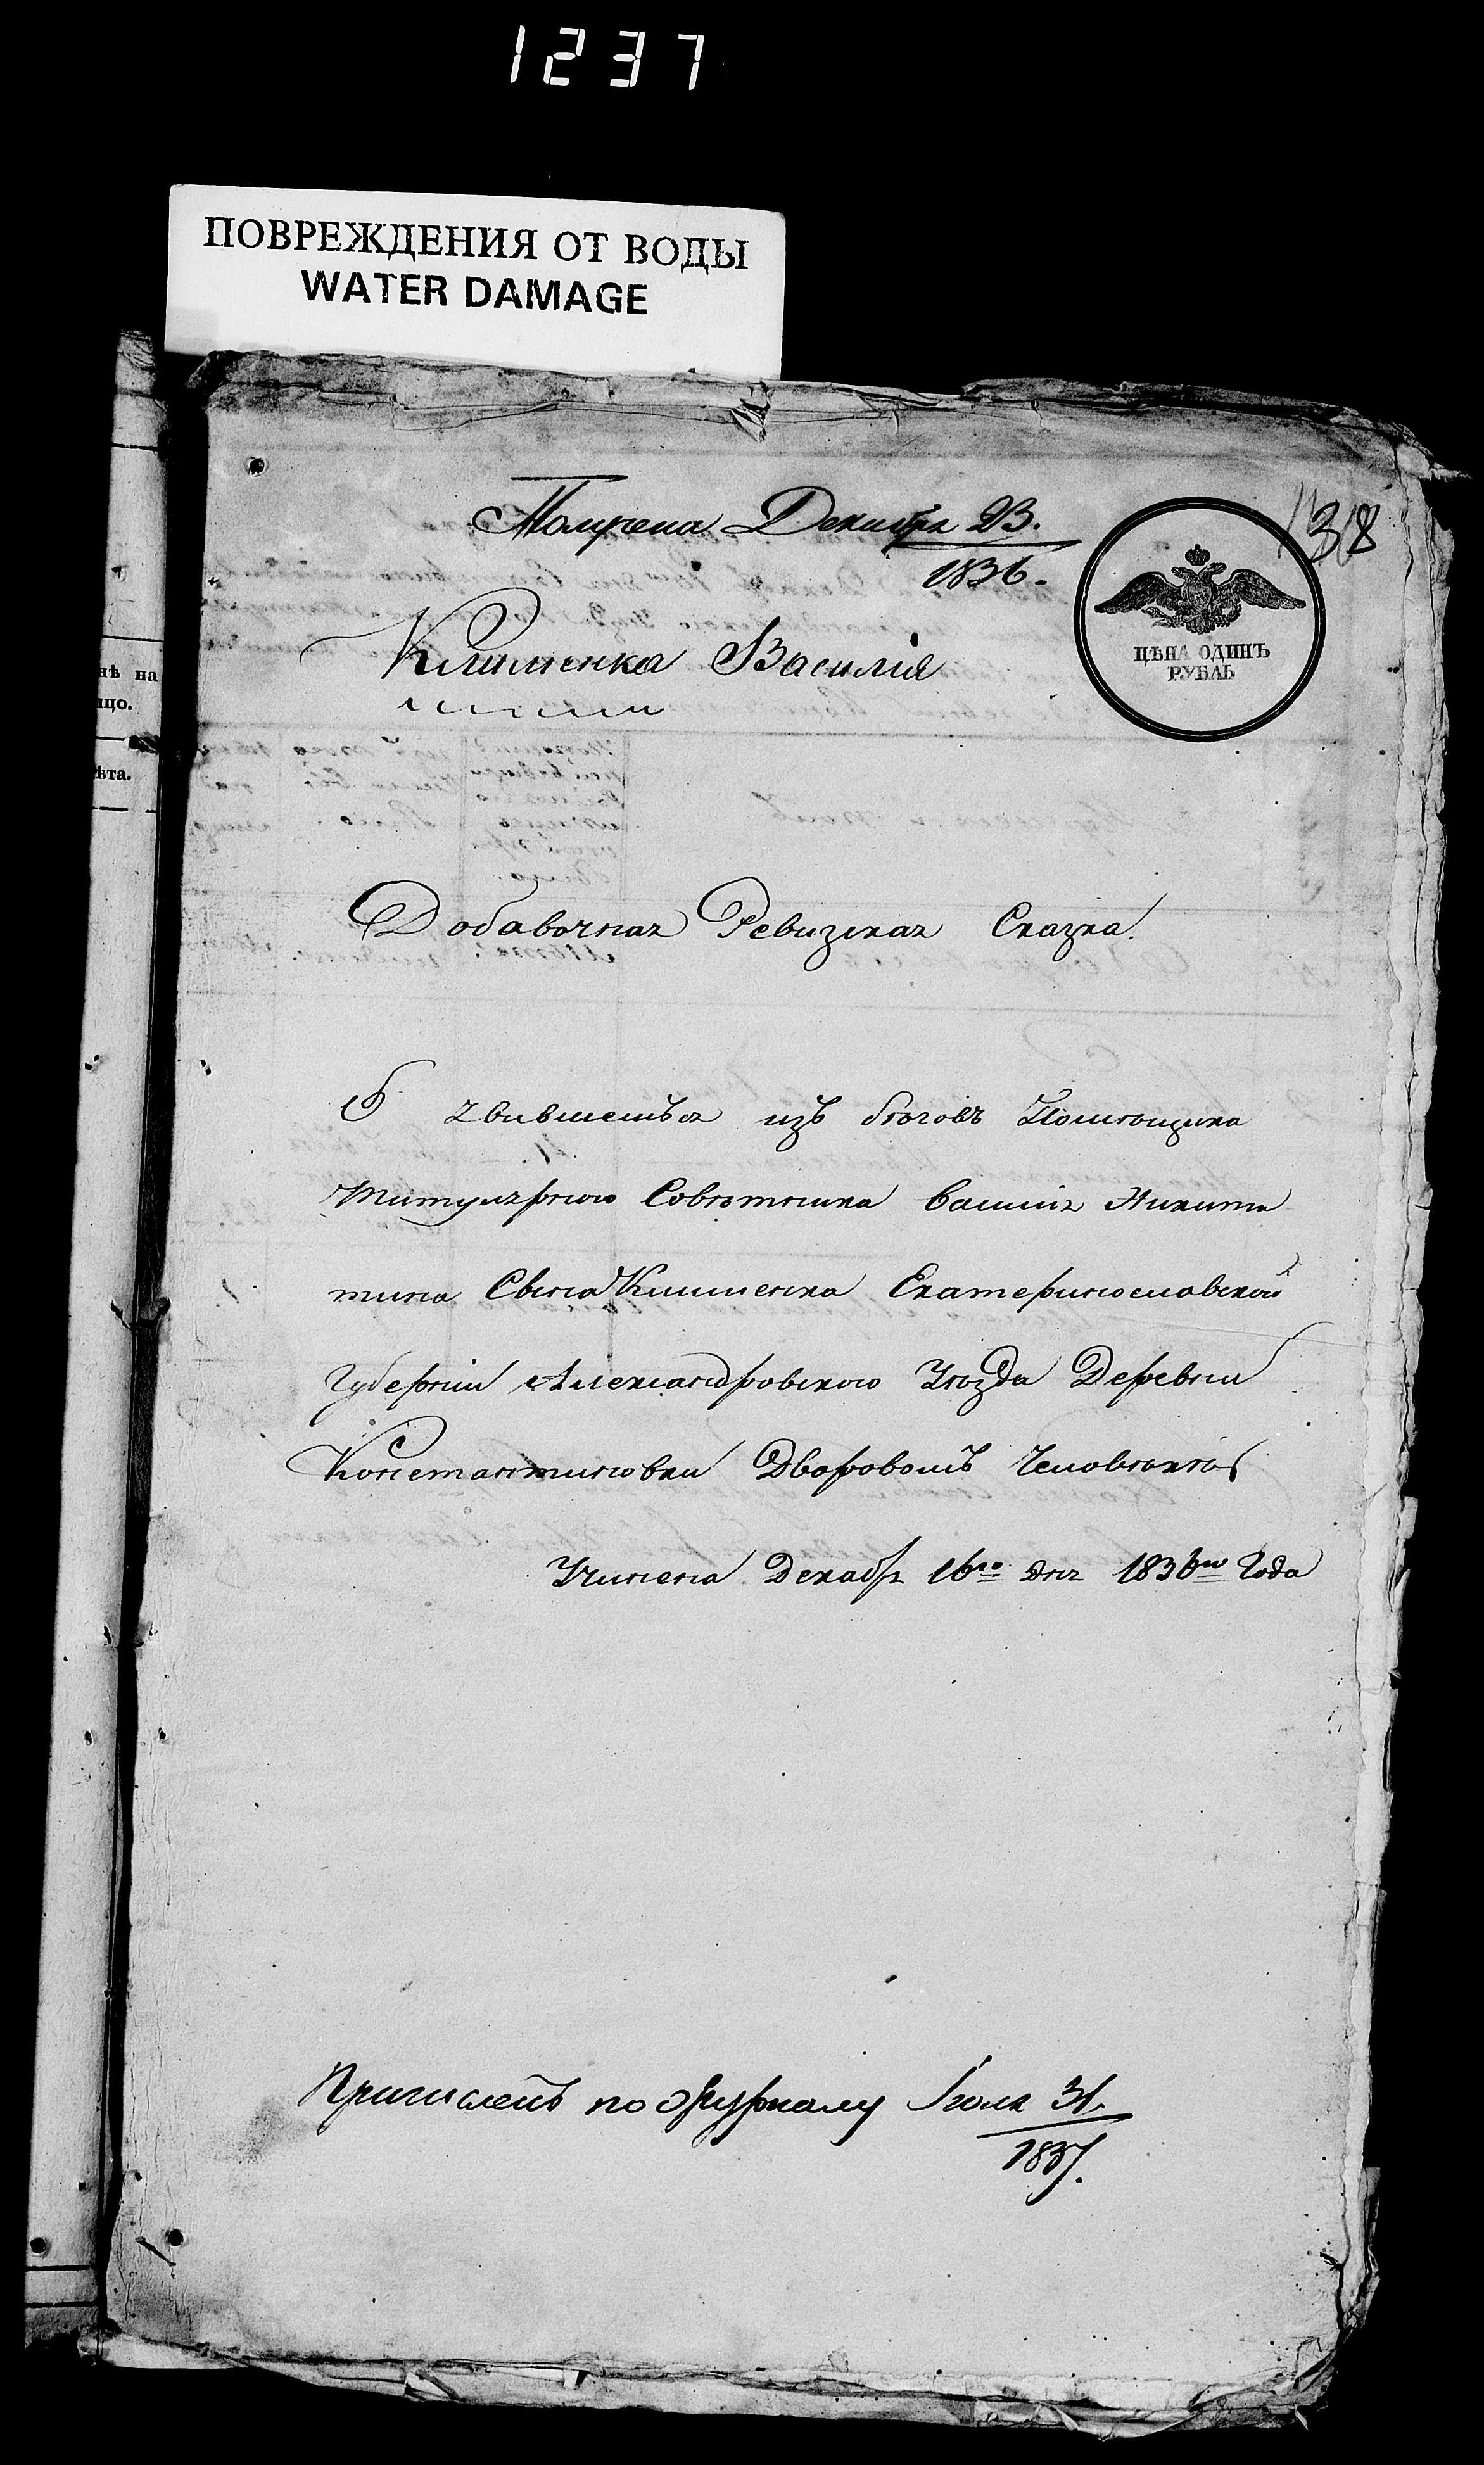 1237
ПОВРЕЖДЕНИЯ ОТ ВОДЫ
WATER DAMAGE
нѣ на
ицо.
ѣта.
Получена Декабря 23.
1836.
1318
ЦѢНА ОДИНЪ
РУБЛЬ
Клименка Василія
Добавочная Ревизская Сказка.
О явившемъся изъ бѣговъ Помѣщика
Титулярного Совѣтника Василія Никити
тина Сына Клименка Екатеринославской
Губерніи Александровского Уѣзда Деревни
Константиновки Дворовомъ Человѣкѣ
Учинена Декабря 16го дня 1836го Года
Причисленъ по Журналу Іюля 31.
1837.